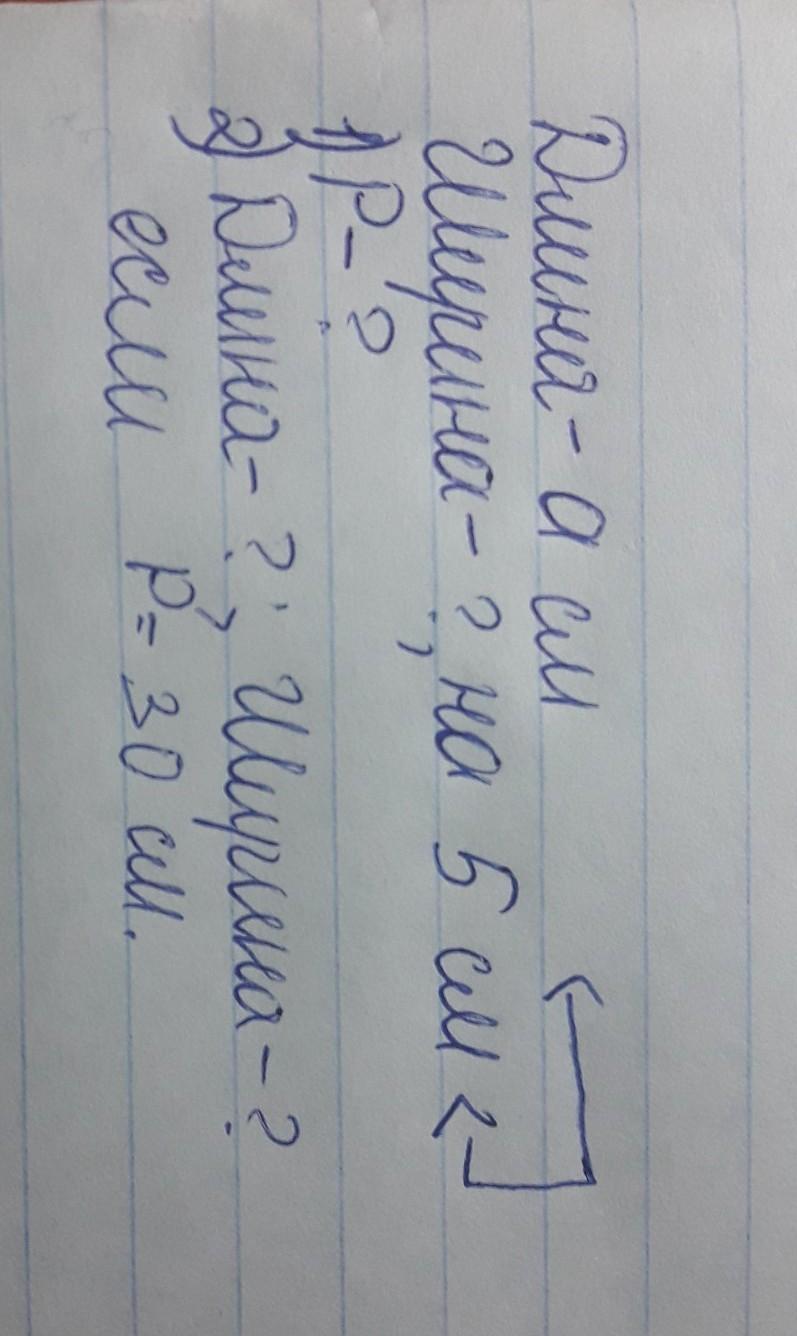 Длина - а см
Ширина - ?, на 5 см <
1) Р - ?
2) Длина - ?; Ширина - ?
если Р = 30 см.